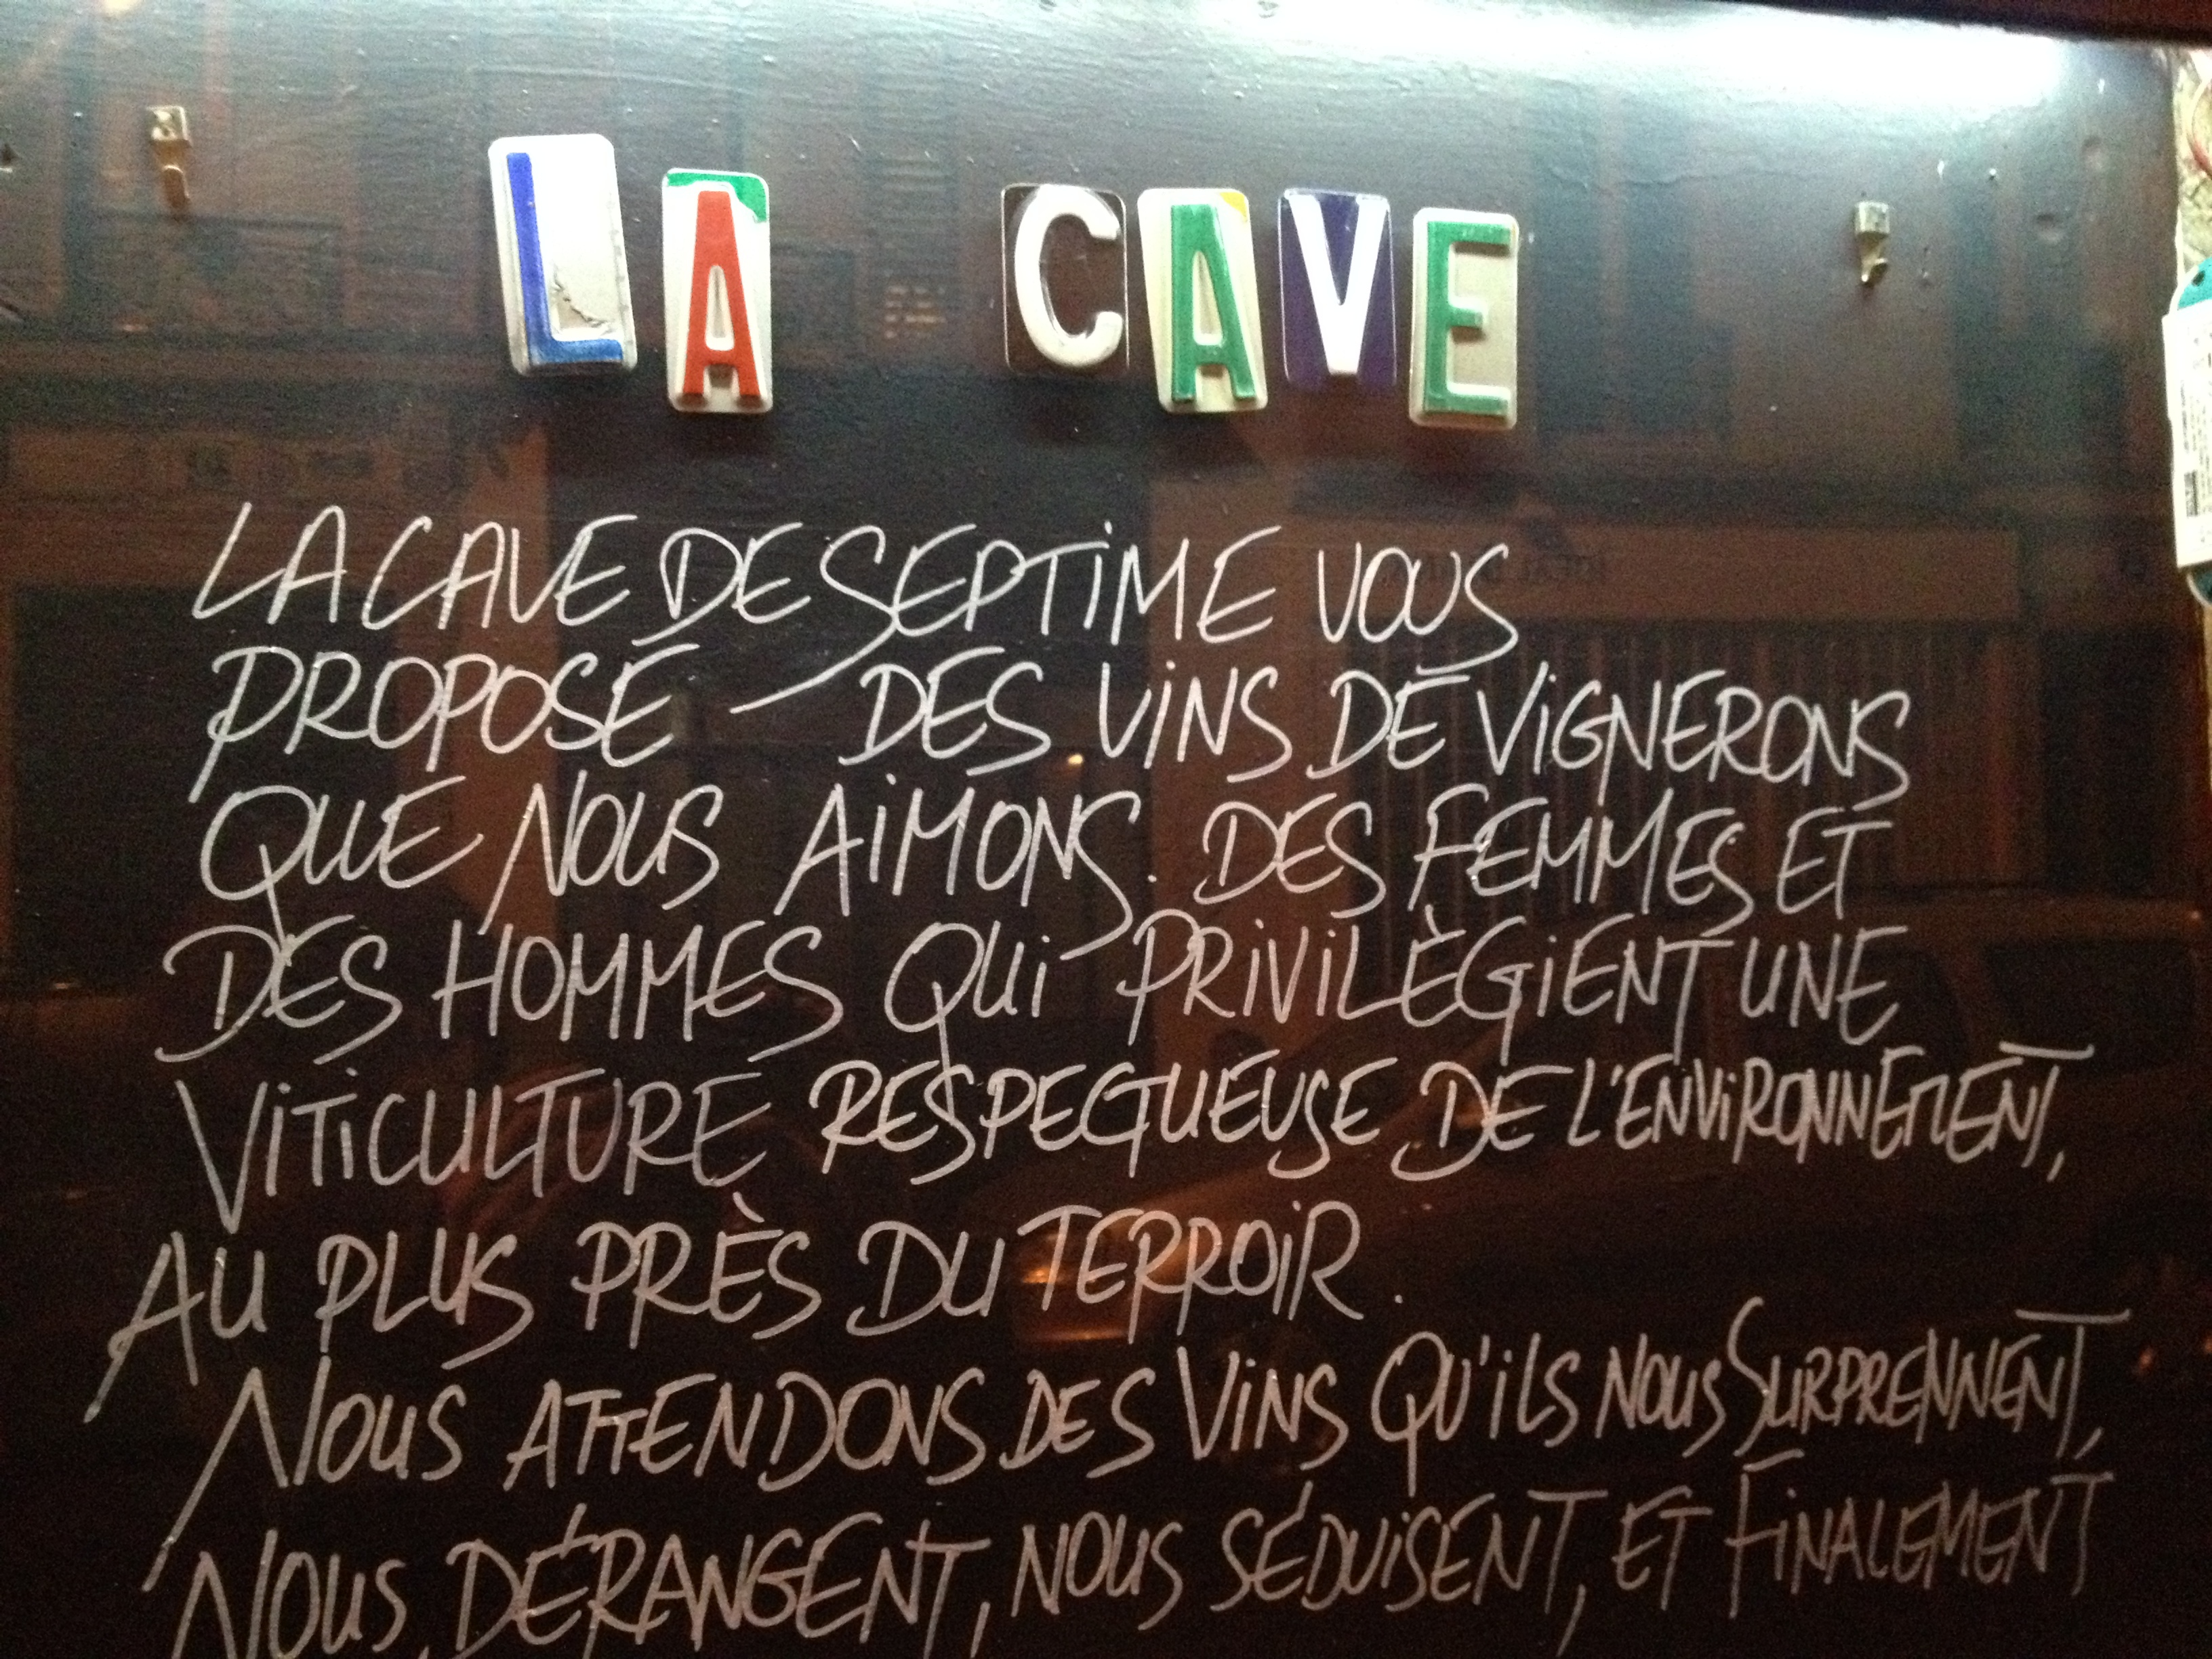 LA CAVE
LA CAVE DE SEPTIME VOUS
PROPOSE DES VINS DE VIGNERONS
QUE NOUS AIMONS. DES FEMMES ET
DES HOMMES QUI PRIVILÈGIENT UNE
VITICULTURE RESPECTUEUSE DE L'ENVIRONNEMENT,
AU PLUS PRÈS DU TERROIR.
NOUS ATTENDONS DES VINS QU'ILS NOUS SURPRENNENT,
NOUS DÉRANGENT, NOUS SÉDUISENT, ET FINALEMENT